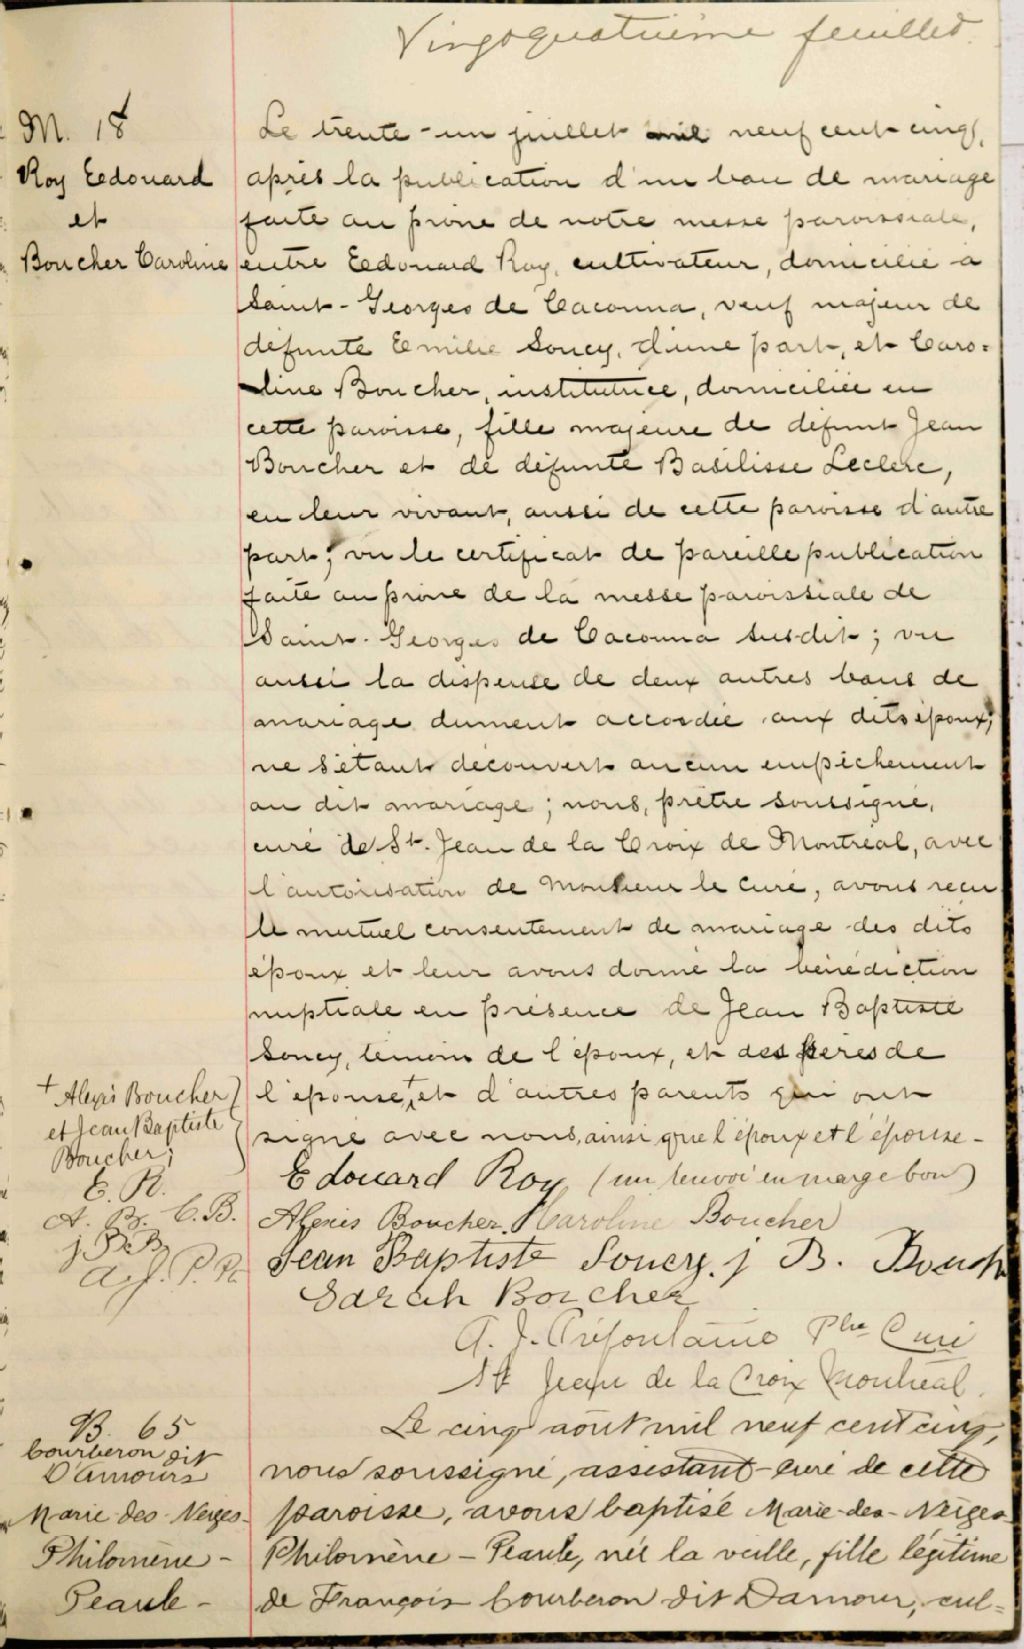 Vingtquatrième feuillet
M. 18
Roy Eedouard
et
Boucher Caroline
Le trente-un juillet mil neuf cent cinq,
après la publication d'un ban de mariage
faite au prône de notre messe paroissiale,
entre Eedouard Roy, cultivateur, domicilié à
Saint-Georges de Cacouna, veuf majeur de
défunte Emilie Soucy, d'une part, et Caro-
line Boucher, institutrice, domiciliée en
cette paroisse, fille majeure de défunt Jean
Boucher et de défunte Basilisse Leclerc,
en leur vivant, aussi de cette paroisse d'autre
part; vu le certificat de pareille publication
faite au prône de la messe paroissiale de
Saint-Georges de Cacouna susdit; vu
aussi la dispense de deux autres bans de
mariage dument accordée aux dits époux;
ne s'étant découvert aucun empêchement
au dit mariage; nous, prêtre soussigné,
curé de St. Jean de la Croix de Montréal, avec
l'autorisation de Monsieur le Curé, avons reçu
le mutuel consentement de mariage des dits
époux et leur avons donné la bénédiction
nuptiale en présence de Jean Baptiste
Soucy, témoin de l'époux, et des frères de
l'épouse,+ et d'autres parents qui ont
signé avec nous, ainsi que l'époux et l'épouse-
+ Alexis Boucher
et Jean Baptiste
Boucher;
E. R.
A. B. C. B.
J. B. B
A. J. P. Pt
Edouard Roy (un renvoi en marge bon)
Alexis Boucher. Caroline Boucher
Jean Baptiste Soucy. j B. Bouch
Sarah Boucher
A. J. Préfontaine Ptre Curé
St Jean de la Croix Montréal.
B. 65
Courberon dit
D'amours
Marie-des-Neiges-
Philomène-
Peaule-
Le cinq août mil neuf cent cinq,
nous soussigné, assistant-curé de cette
paroisse, avons baptisé Marie-des-Neiges-
Philomène-Peaule, née la veille, fille légitime
de François Courberon dit Damour, cul-